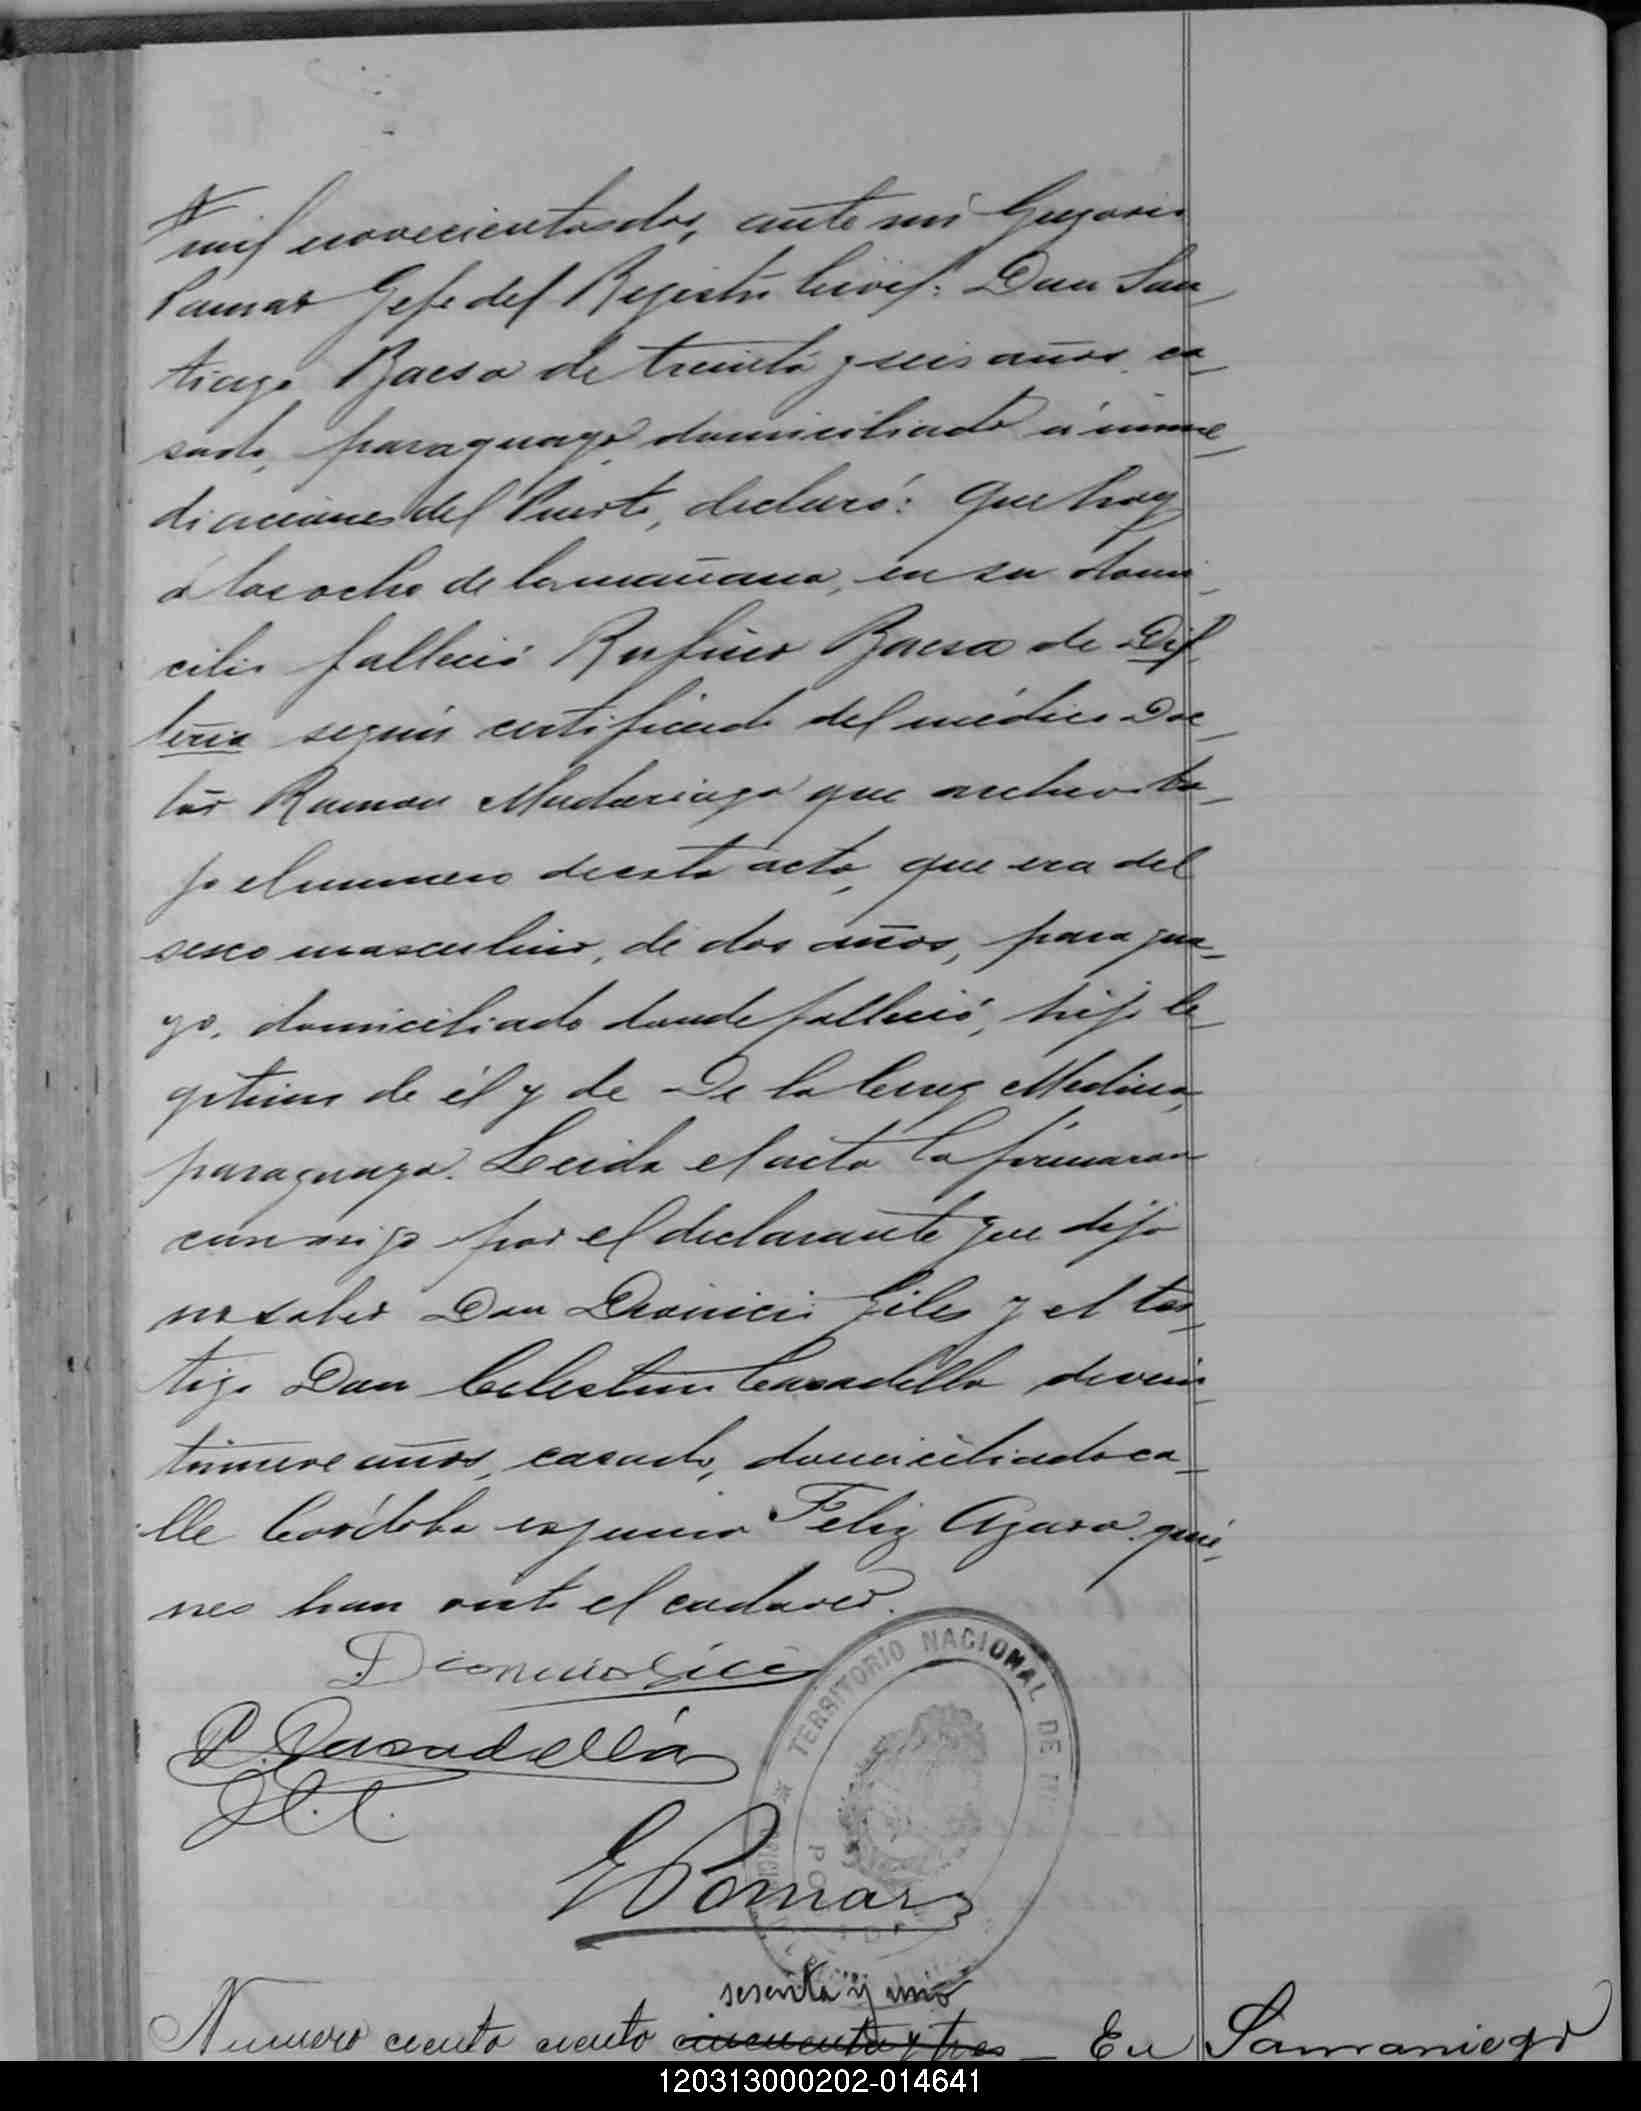 mil novecientos dos, ante mi Gregorio
Pomar Gefe del Registro Civil: Don San_
tiago Baesa de treinta y seis años, ca_
sado, paraguayo domiciliado á inme_
diaciones del Puerto, declaró: Que hoy
á las ocho de la mañana, en su domi_
cilio falleció Rufino Baesa de Dif_
teria según certificado del médico Doc_
tor Ramon Madariaga que archivo ba_
jo el numero de esta acta, que era del
sexo masculino, de dos años, paragua_
yo, domiciliado donde falleció, hijo le_
gitimo de él y de De la Cruz Medina,
paraguaya. Leida el acta la firmaron
conmigo por el declarante que dijo
no saber Don Dionicio Giles y el tes_
tigo Don Celestino Casadella de vein_
tinueve años, casado, domiciliado ca_
lle Córdoba esquina Feliz Azara quie_
nes han visto el cadaver.
C. Casadellá
G Pomar
TERRITORIO NACIONAL DE
sesenta y uno
Numero ciento ciento cincuenta y tres _ En
Samaniego
120313000202-014641